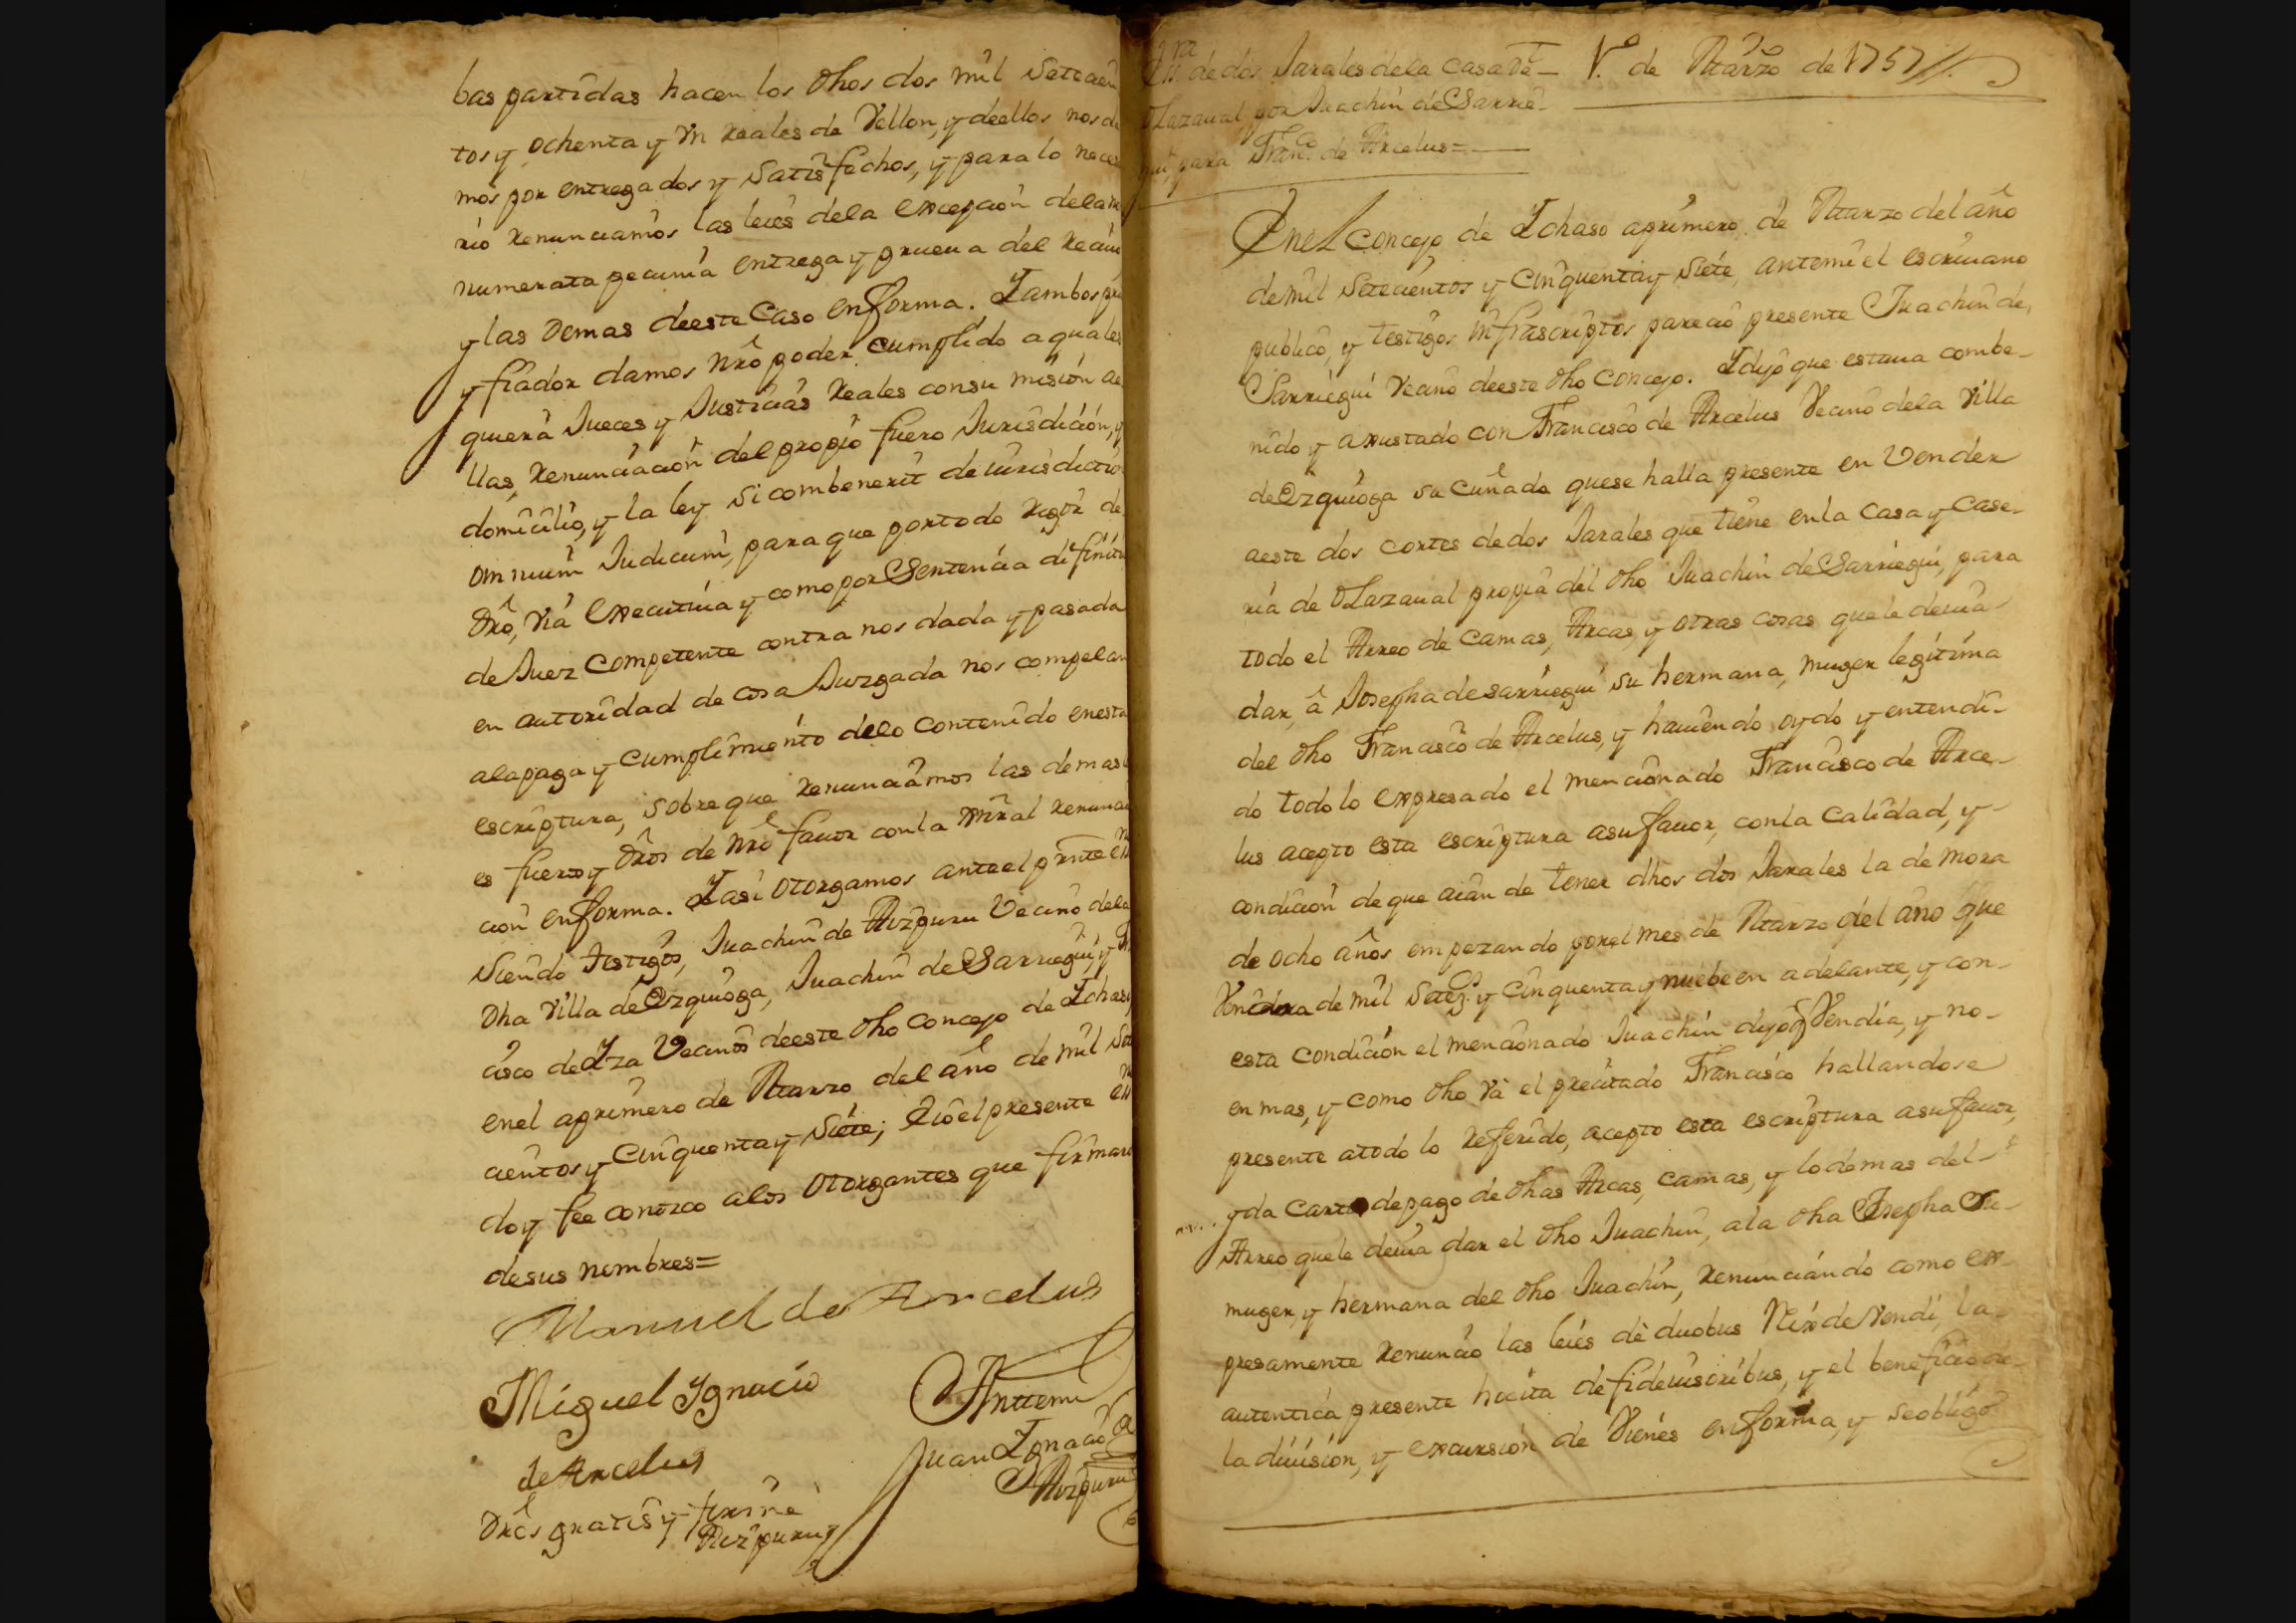 bas partidas hacen los dhos dos mil Setecien
tos y ochenta y un reales de Vellon, y deellos nos da
mos por entregados y Satisfechos, y para lo neces
rio renunciamos las leies dela excepcion dela no
numerata pecunia entrega y prueua del reciuo
y las Demas deeste Caso enforma. Y ambos prãl
y fiador damos nrõ poder cumplido a quales
quiera Jueces y Justicias reales consu mision ae
llas, renunciacion del propio fuero Jurisdicion, y
domicilio, y la ley Si combenerit de iurisdictio
omnium Judicum, para que portodo rigor de
drõ, via executiua y como por Sentencia difiniti
de Juez Competente contra nos dada y pasada
en autoridad de cosa Juzgada nos compelan
alapaga y cumplimiento delo contenido enesta
escriptura, sobreque renunciamos las demas
es fueros y drõs de nrõ fauor conla renuncia
cion enforma. Y asi otorgamos anteel prnte
Siendo testigos, Juachin de Aizpuru Vecino dela
dha villa de Ezquioga, Juachin de Sarriegui, y
cisco de Yza Vecinos deeste dho Concejo de Ychaso
enel aprimero de Marzo del año de mil Sete
cientos y Cinquenta y Siete; Eioel presente
doy fee conozco alos otorgantes que firmaro
desus nombres=
Manuel de Arcelus
Miguel Ygnacio
de Arcelus
Anttemi
Juan Ygnacio
Aizpuru
Drõs gratis y firme
Aizpuru
de dos Jarales dela Casa de
Olazaual por Juachin de Sarrie-
gui, para Franco. de Arcelus=
1.o de Marzo de 1757//.
Enel Concejo de Ychaso aprimero de Marzo del año
demil Setecientos y Cinquenta y Siete, antemi el escriuano
publico, y testigos infrascriptos parecio presente Juachin de
Sarriegui Vecino deeste dho Concejo. Y dijo que estaua combe-
nido y axustado con Francisco de Arcelus Vecino dela Villa
de Ezquioga su Cuñado quese halla presente en Vender
aeste dos cortes dedos Jarales que tiene enla Casa y Case-
ria de Olazaual propia del dho Juachin de Sarriegui, para
todo el Arreo de Camas, Arcas, y otras cosas quele deuia
dar, â Josepha de Sarriegui su hermana, muger legitima
del dho Francisco de Arcelus, y hauiendo oydo y entendi-
do todo lo expresado el mencionado Francisco de Arce-
lus acepto esta escriptura asu fauor, conla Calidad, y
condicion de que aian de tener dhos dos Jarales la demora
de ocho años empezando porel mes de Marzo del año que
Vendra de mil Setez.s y Cinquenta y nuebe en adelante, y con
esta condicion el mencionado Juachin dijo q Vendia, y no
en mas, y como dho va el precitado Francisco hallandose
presente atodo lo referido, acepto esta escriptura asu fauor,
y da Carta depago de dhas Arcas, Camas, y lo demas del
Arreo quele deuia dar el dho Juachin, ala dha Josepha Su
muger, y hermana del dho Juachin, renunciando como ex-
presamente renuncio las leies de duobus Rex de Vendi, la
autentica presente hocita de fideiusoribus, y el beneficio de
la diuision, y excursion de Vienes enforma, y seobligo